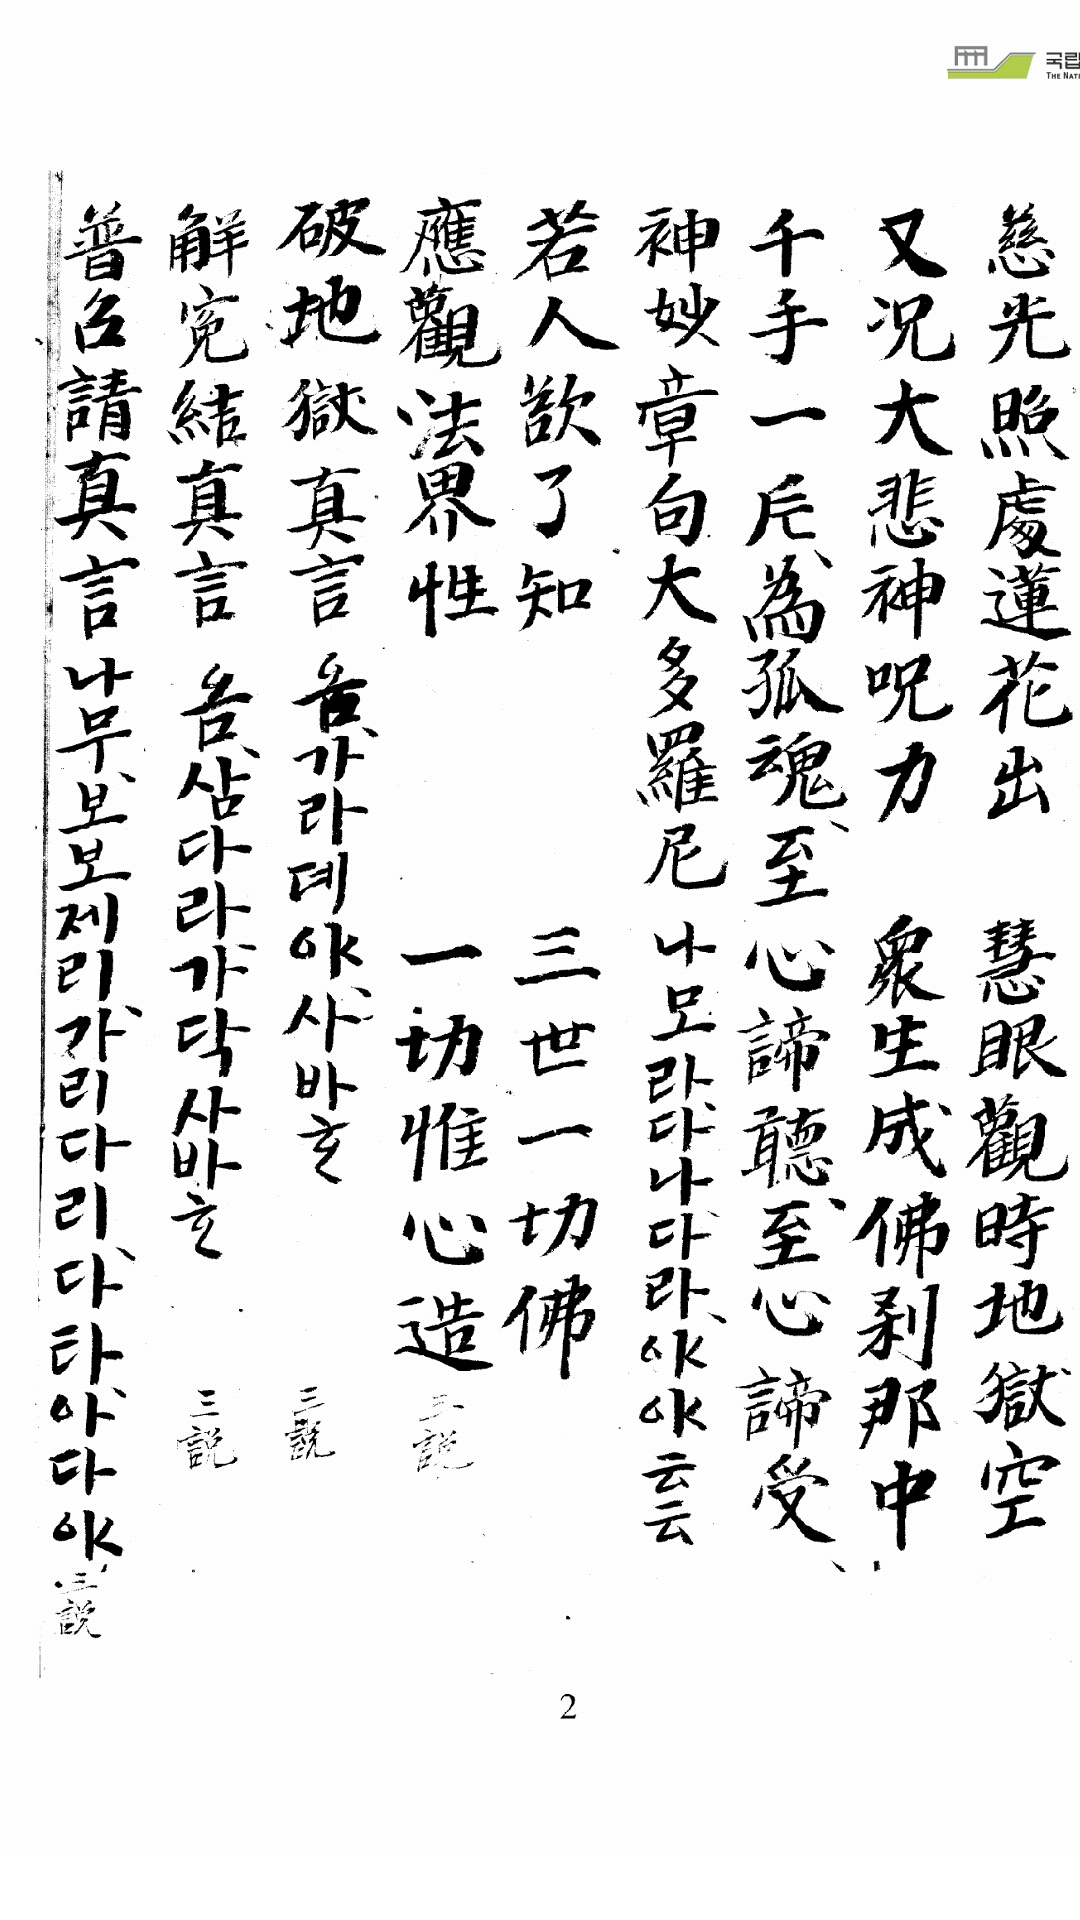 국립
THE NATI
慈光照處蓮花出 慧眼觀時地獄空
又況大悲神呪力 衆生成佛刹那中
千手一片為孤魂至心諦聽至心諦受
神妙章句大多羅尼 나모라다나다라야야云云
若人欲了知 三世一切佛
應觀法界性 一切惟心造 三說
破地獄真言 옴가라뎨야사바호 三說
解寃結真言 옴삼다라가닥사바호 三說
普召請真言 나무보보제리가리다리다타아다야 三說
2